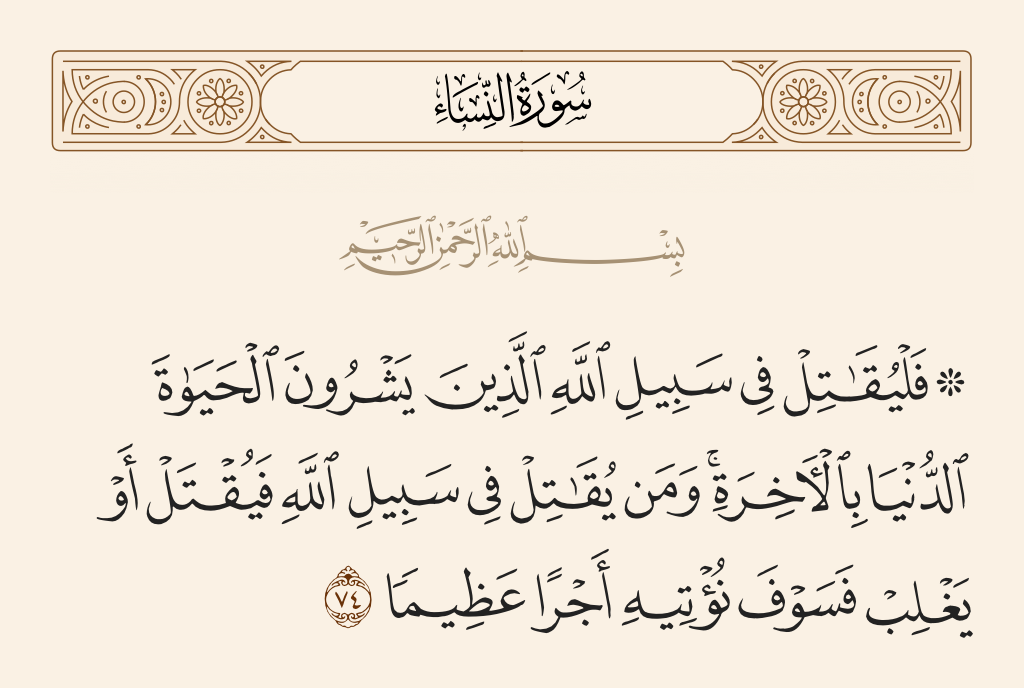 سُورَةُ النِّسَاءِ
بِسْمِ ٱللَّهِ ٱلرَّحْمَٰنِ ٱلرَّحِيمِ
۞ فَلْيُقَٰتِلْ فِى سَبِيلِ ٱللَّهِ ٱلَّذِينَ يَشْرُونَ ٱلْحَيَوٰةَ
ٱلدُّنْيَا بِٱلْأَخِرَةِ ۚ وَمَن يُقَٰتِلْ فِى سَبِيلِ ٱللَّهِ فَيُقْتَلْ أَوْ
يَغْلِبْ فَسَوْفَ نُؤْتِيهِ أَجْرًا عَظِيمًا ٧٤